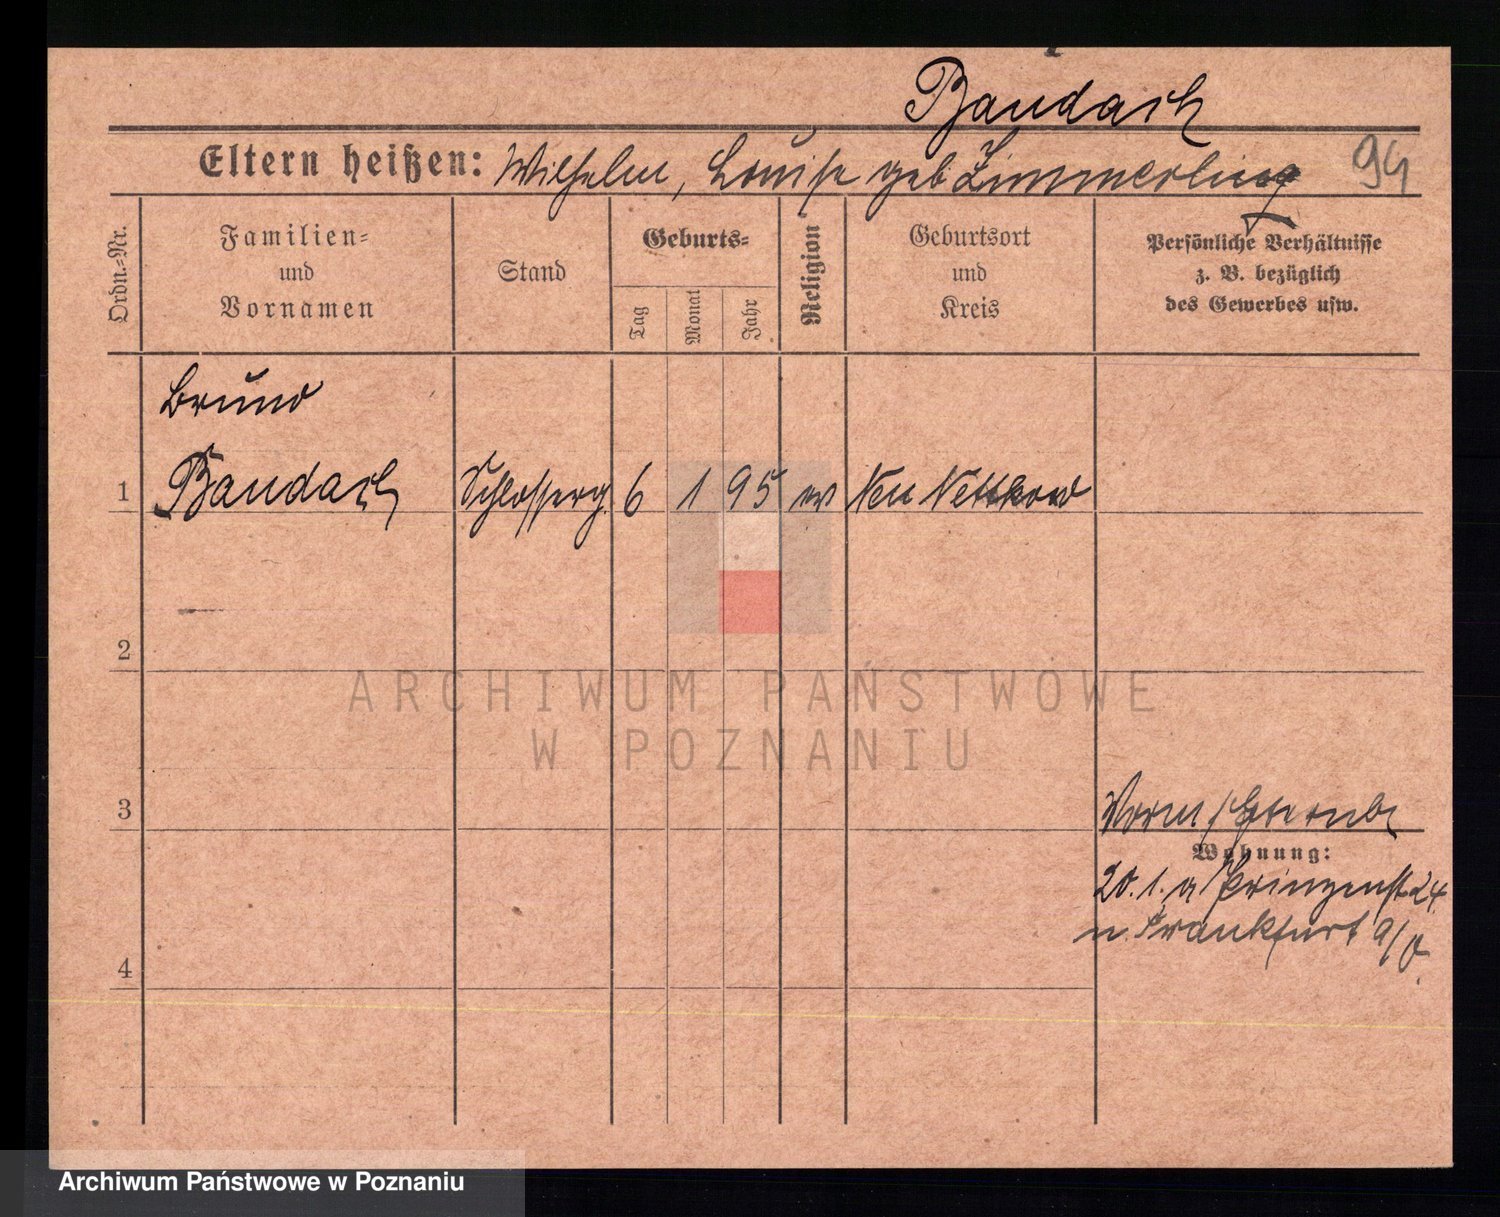 Baudach
Eltern heißen: Wilhelm, Louise geb Zimmerling 94
Ordn.-Nr.
Familien-
und
Vornamen
Stand
Geburts-
Tag
Monat
Jahr
Religion
Geburtsort
und
Kreis
Persönliche Verhältnisse
z. B. bezüglich
des Gewerbes usw.
Bruno
1 Baudach Schlosserg. 6 1 95 ev Neu Nettkow
2
ARCHIWUM PAŃSTWOWE
W POZNANIU
3
Wohnung:
20. 1. a Prinzenst 24
n. Frankfurt a/O.
4
Archiwum Państwowe w Poznaniu